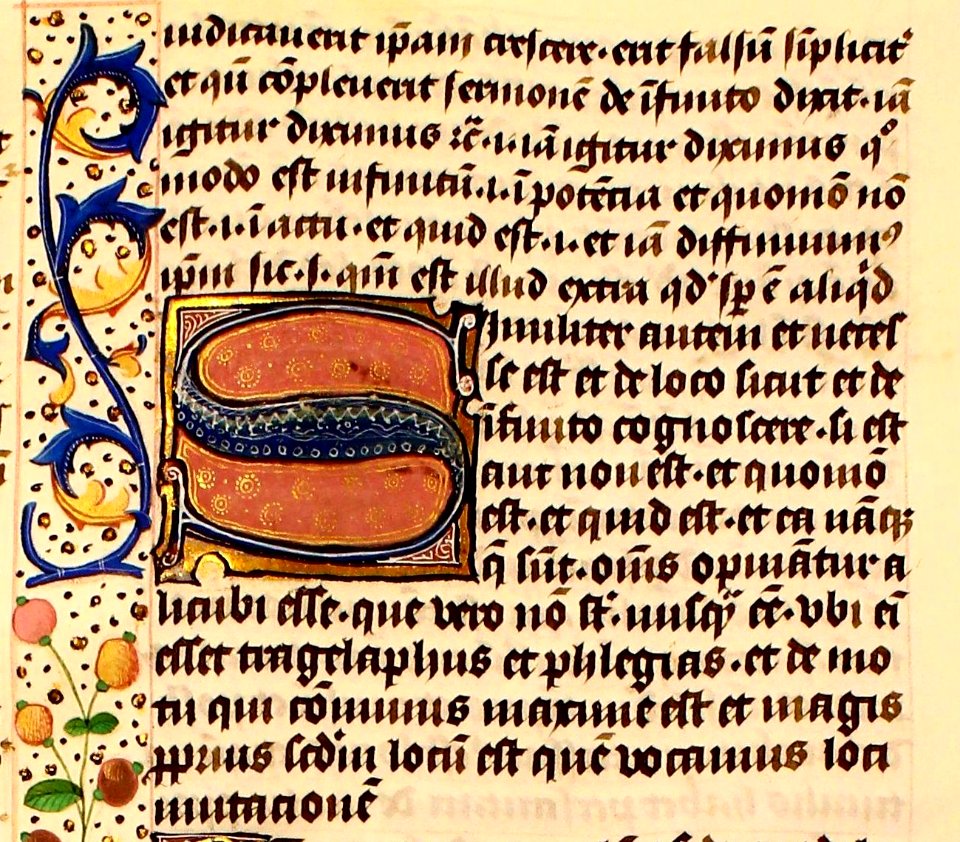 iudicauerit ip̄am crescere. erit falsū sīplicit᷑
et qn̄ cōpleuerit sermonē de īfinito dixit. iā
igitur diximus ⁊c̄. i. iā igitur diximus qͦ
modo est infinitū. i. ī potētia et quomō nō
est. i. ī actu. et quid est. i. et iā diffiniuimꝰ
ip̄m sic. s. qm̄ est illud extra qd᷑ sꝑ ē aliqͥd
Similiter autem et neces
se est et de loco sicut et de
īfinito cognoscere. si est
aut non est. et quomō
est. et quid est. et ea nāqꝫ
q̄ sūt. om̄s opinātur a
licubi esse. que vero nō st᷑. nusqᷓ eē. vbi eī
esset tragelaphus et phlegias. et de mo
tu qui cōmunis maxime est et magis
ꝓprius scd᷑m locū est quē vocamus loci
mutacionē